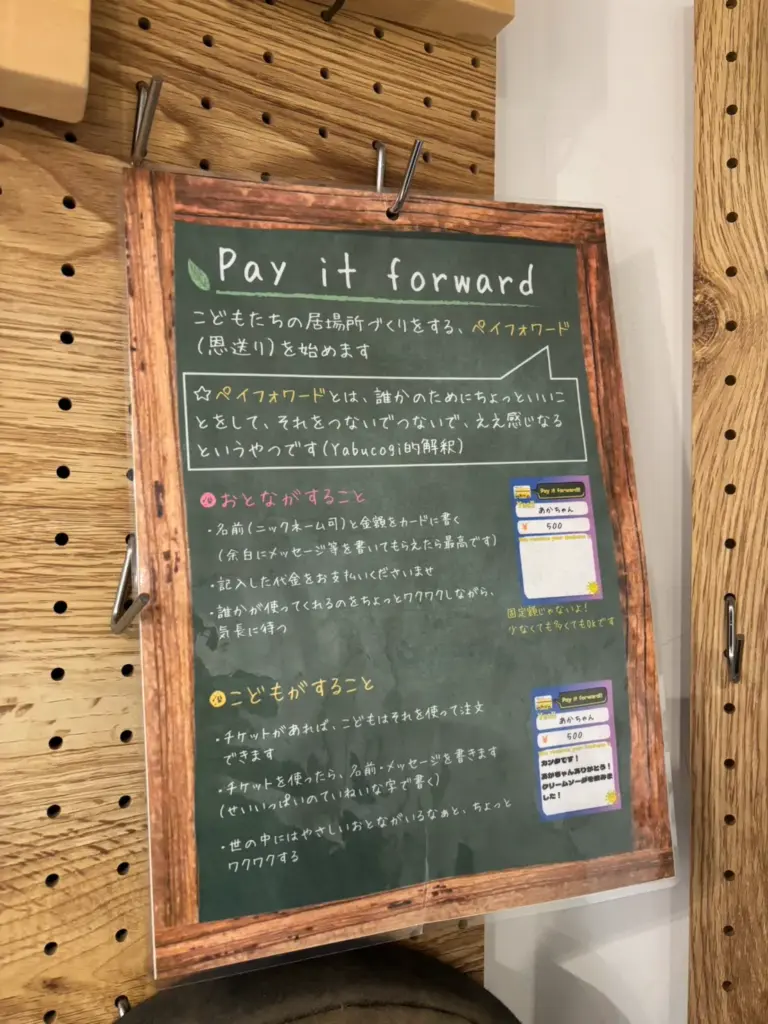 Pay it forward
こどもたちの居場所づくりをする、ペイフォワード
(恩送り)を始めます
☆ペイフォワードとは、誰かのためにちょっといいこ
とをして、それをつないでつないで、ええ感じなる
というやつです(Yabucogi的解釈)
おとながすること
・名前(ニックネーム可)と金額をカードに書く
(余白にメッセージ等を書いてもらえたら最高です)
・記入した代金をお支払いくださいませ
・誰かが使ってくれるのをちょっとワクワクしながら、
気長に待つ
Pay it forward!!
あかちゃん
¥ 500
固定額じゃないよ!
少なくても多くてもOKです
こどもがすること
・チケットがあれば、こどもはそれを使って注文
できます
・チケットを使ったら、名前・メッセージを書きます
(せいいっぱいのていねいな字で書く)
・世の中にはやさしいおとながいるなぁと、ちょっと
ワクワクする
Pay it forward!!
あかちゃん
¥ 500
カンタです!
あかちゃんありがとう!
クリームソーダを飲みま
した!